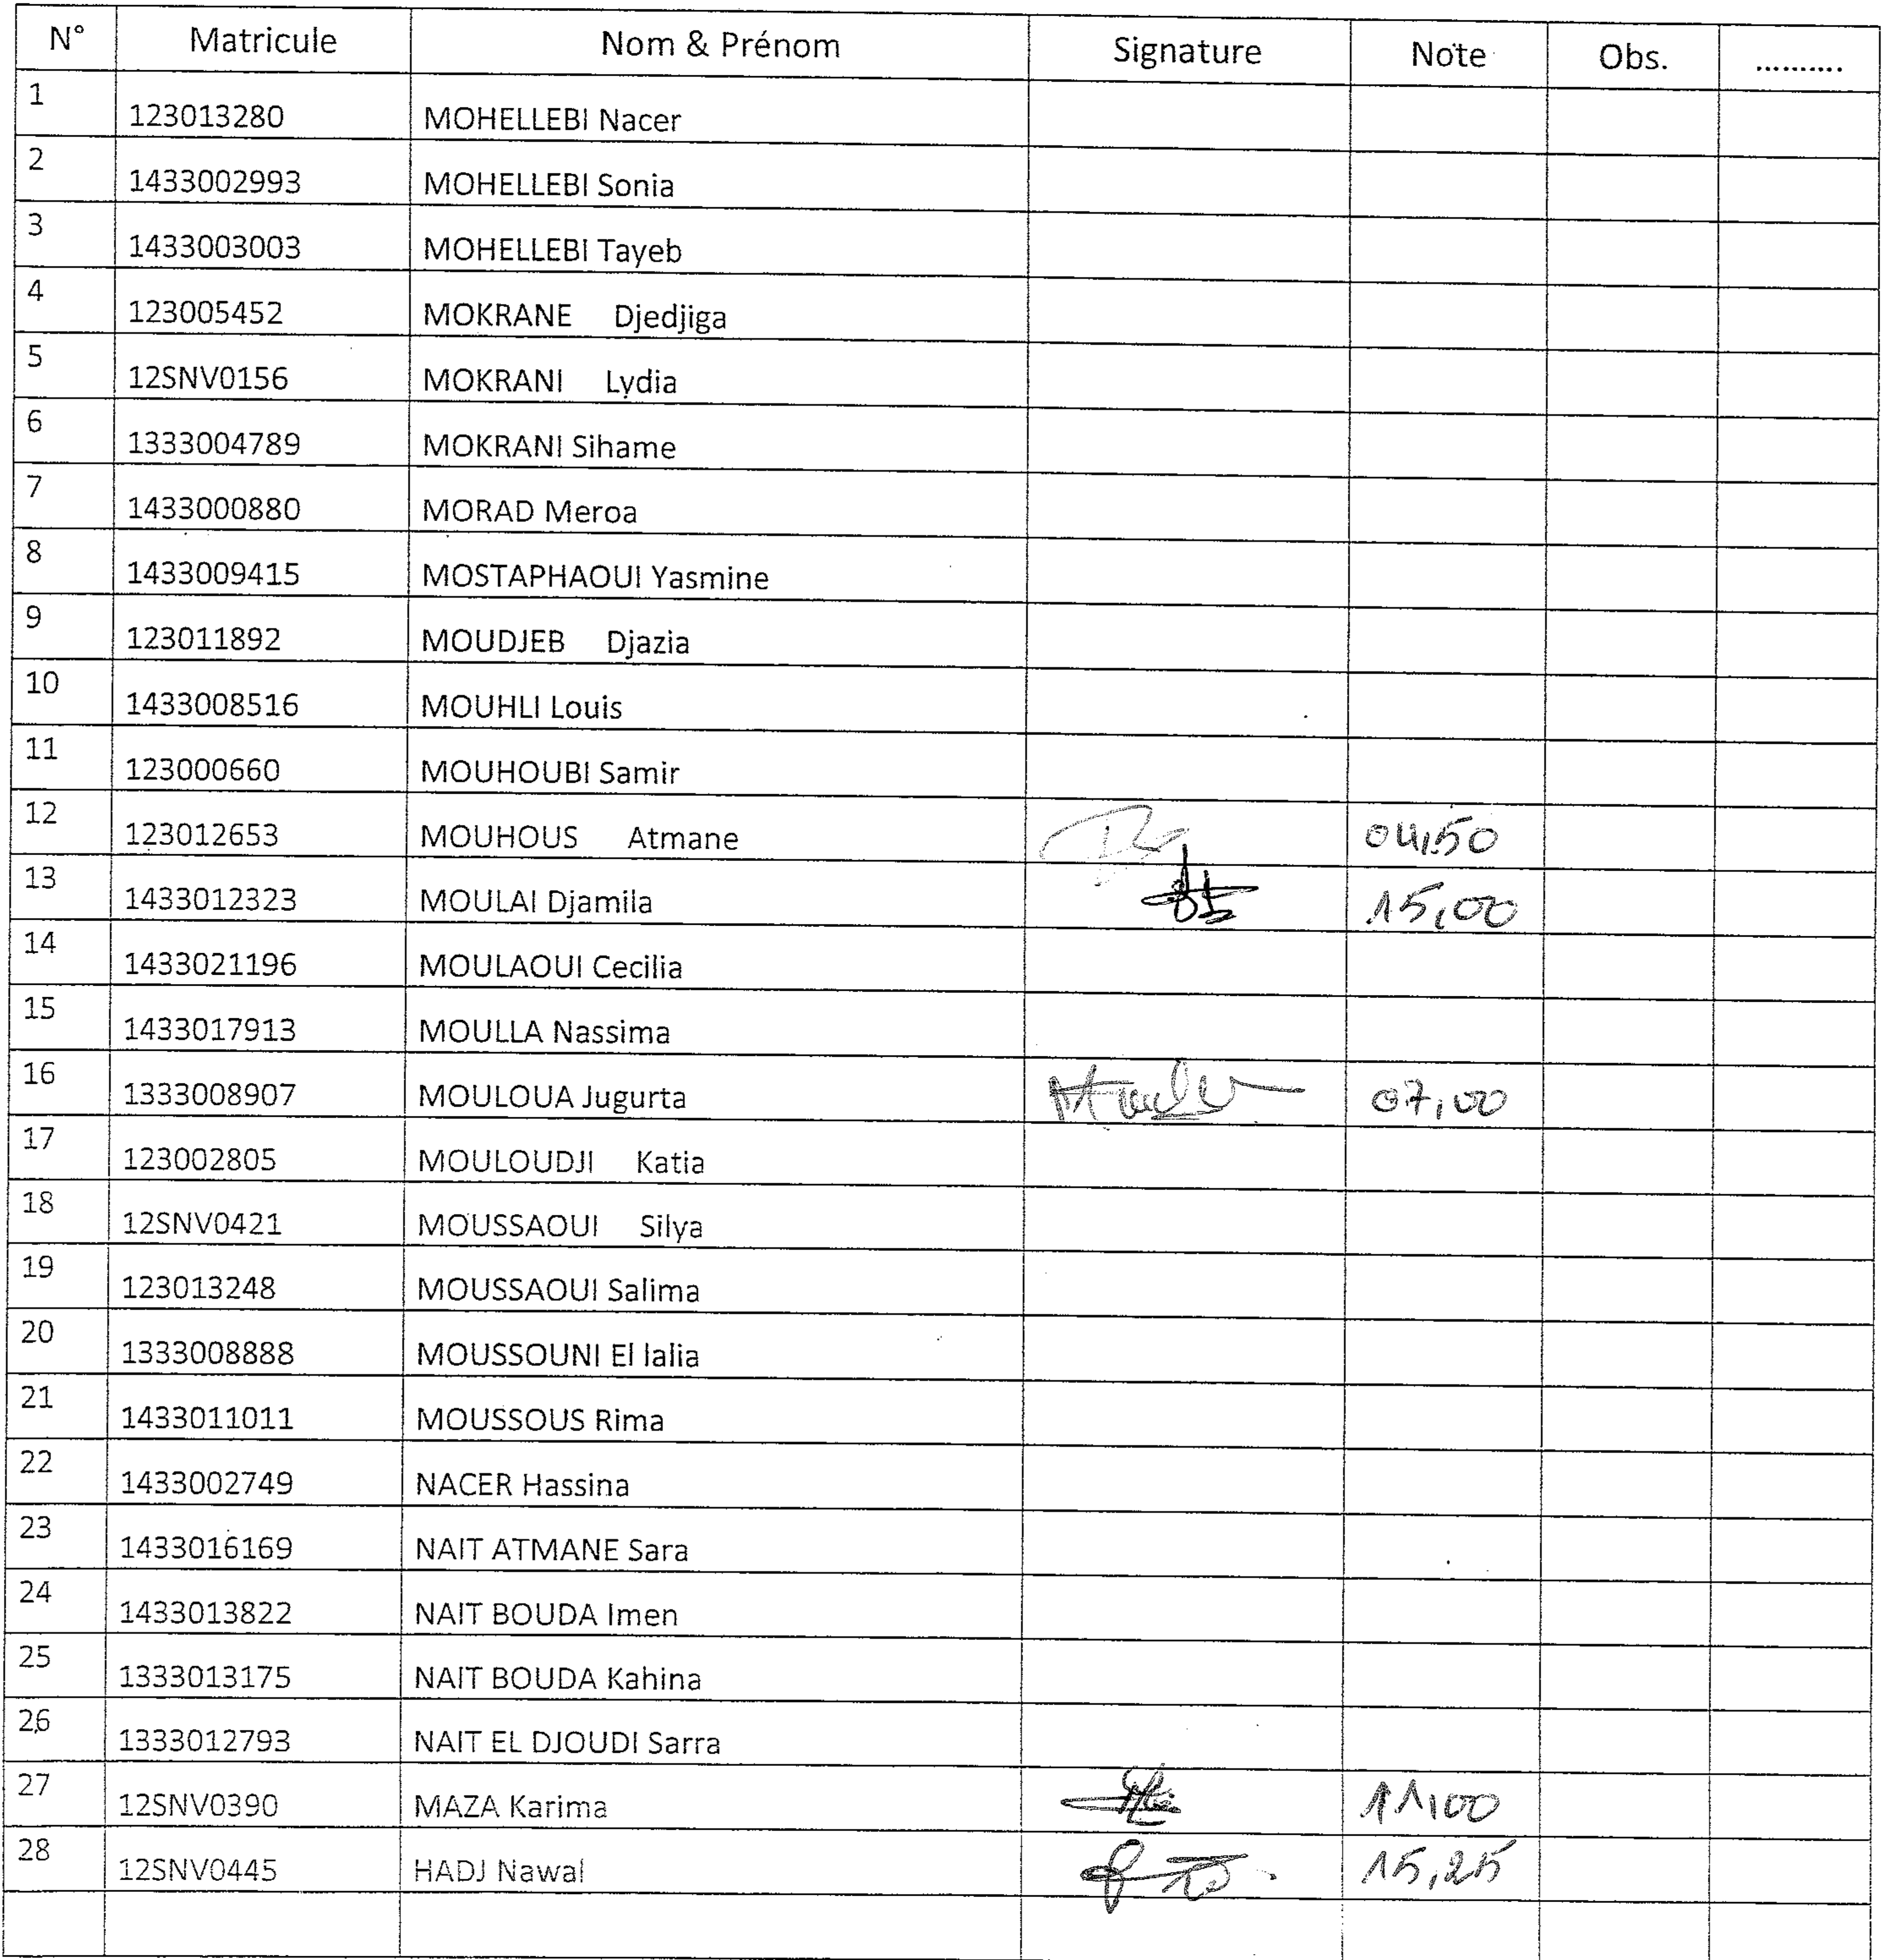 N° Matricule Nom & Prénom Signature Note Obs. ..........
1 123013280 MOHELLEBI Nacer
2 1433002993 MOHELLEBI Sonia
3 1433003003 MOHELLEBI Tayeb
4 123005452 MOKRANE Djedjiga
5 12SNV0156 MOKRANI Lydia
6 1333004789 MOKRANI Sihame
7 1433000880 MORAD Meroa
8 1433009415 MOSTAPHAOUI Yasmine
9 123011892 MOUDJEB Djazia
10 1433008516 MOUHLI Louis
11 123000660 MOUHOUBI Samir
12 123012653 MOUHOUS Atmane 04,50
13 1433012323 MOULAI Djamila 15,00
14 1433021196 MOULAOUI Cecilia
15 1433017913 MOULLA Nassima
16 1333008907 MOULOUA Jugurta 07,00
17 123002805 MOULOUDJI Katia
18 12SNV0421 MOUSSAOUI Silya
19 123013248 MOUSSAOUI Salima
20 1333008888 MOUSSOUNI El lalia
21 1433011011 MOUSSOUS Rima
22 1433002749 NACER Hassina
23 1433016169 NAIT ATMANE Sara
24 1433013822 NAIT BOUDA Imen
25 1333013175 NAIT BOUDA Kahina
26 1333012793 NAIT EL DJOUDI Sarra
27 12SNV0390 MAZA Karima 11,00
28 12SNV0445 HADJ Nawal 15,25